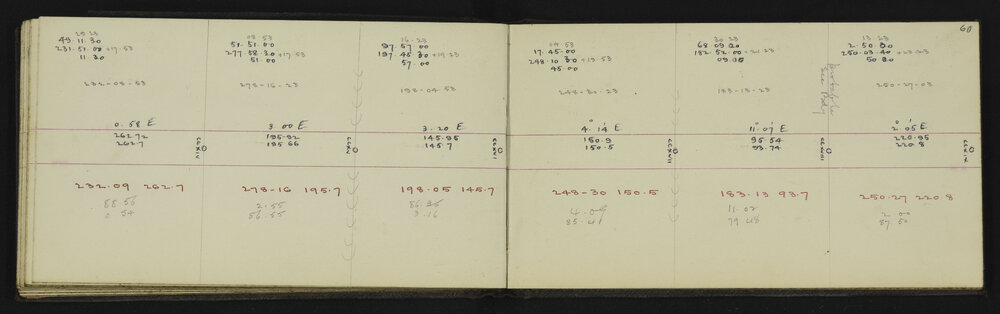 60
29 23
49. 11. 30
231. 51. 00 +17.53
11 30
232-08-53
0. 58 E
262.72
262.7
232.09 262.7
88.56
0 54
08 53
51. 51. 00
277. 58. 30 +17.53
51. 00
278-16-23
3. 00 E
195.92
195.66
278-16 195.7
2.55
56.55
16.23
97. 57 00
197. 48. 30 +17.23
57. 00
198.04.53
3. 20 E
145.95
145.7
198.05 145.7
86.35
3.16
09.53
17. 45. 00
248. 10 30 +19.53
45.00
248-30-23
4. 14 E
150.9
150.5
248-30 150.5
4.09
85.41
30 23
68 09 30
182. 52. 00 +21.23
183-13-23
11. 07 E
95.54
93.74
183.13 93.7
11.02
79 48
See Bdy
13. 23
2. 50. 30
250. 03. 40 +23.23
50 30
250-27-03
2. 05 E
220.95
220.8
250.27 220.8
2.00
87.50